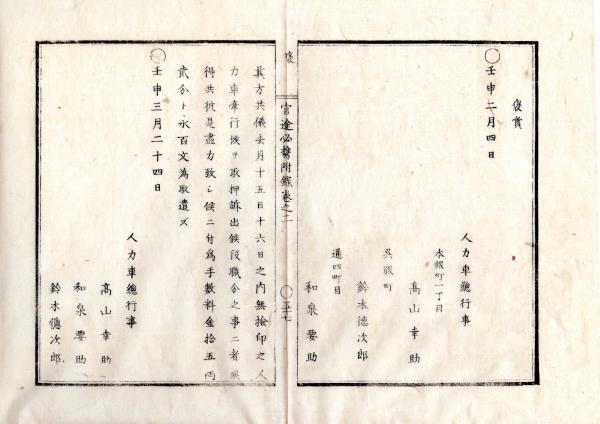 褒賞
〇壬申二月四日
人力車總行事
本銀町一丁目
髙山幸助
呉服町
鈴木德次郎
通四町目
和泉要助
官途必携附錄卷之二
〇五十七
其方共儀去月十五日十六日之内無撿印之人
力車牽行候ヲ取押訴出候段職分之事ニ者候
得共彼是盡力致シ候ニ付為手數料金拾五兩
貳分ト永百文為取遣ス
〇壬申三月二十四日
人力車總行事
髙山幸助
和泉要助
鈴木德次郎